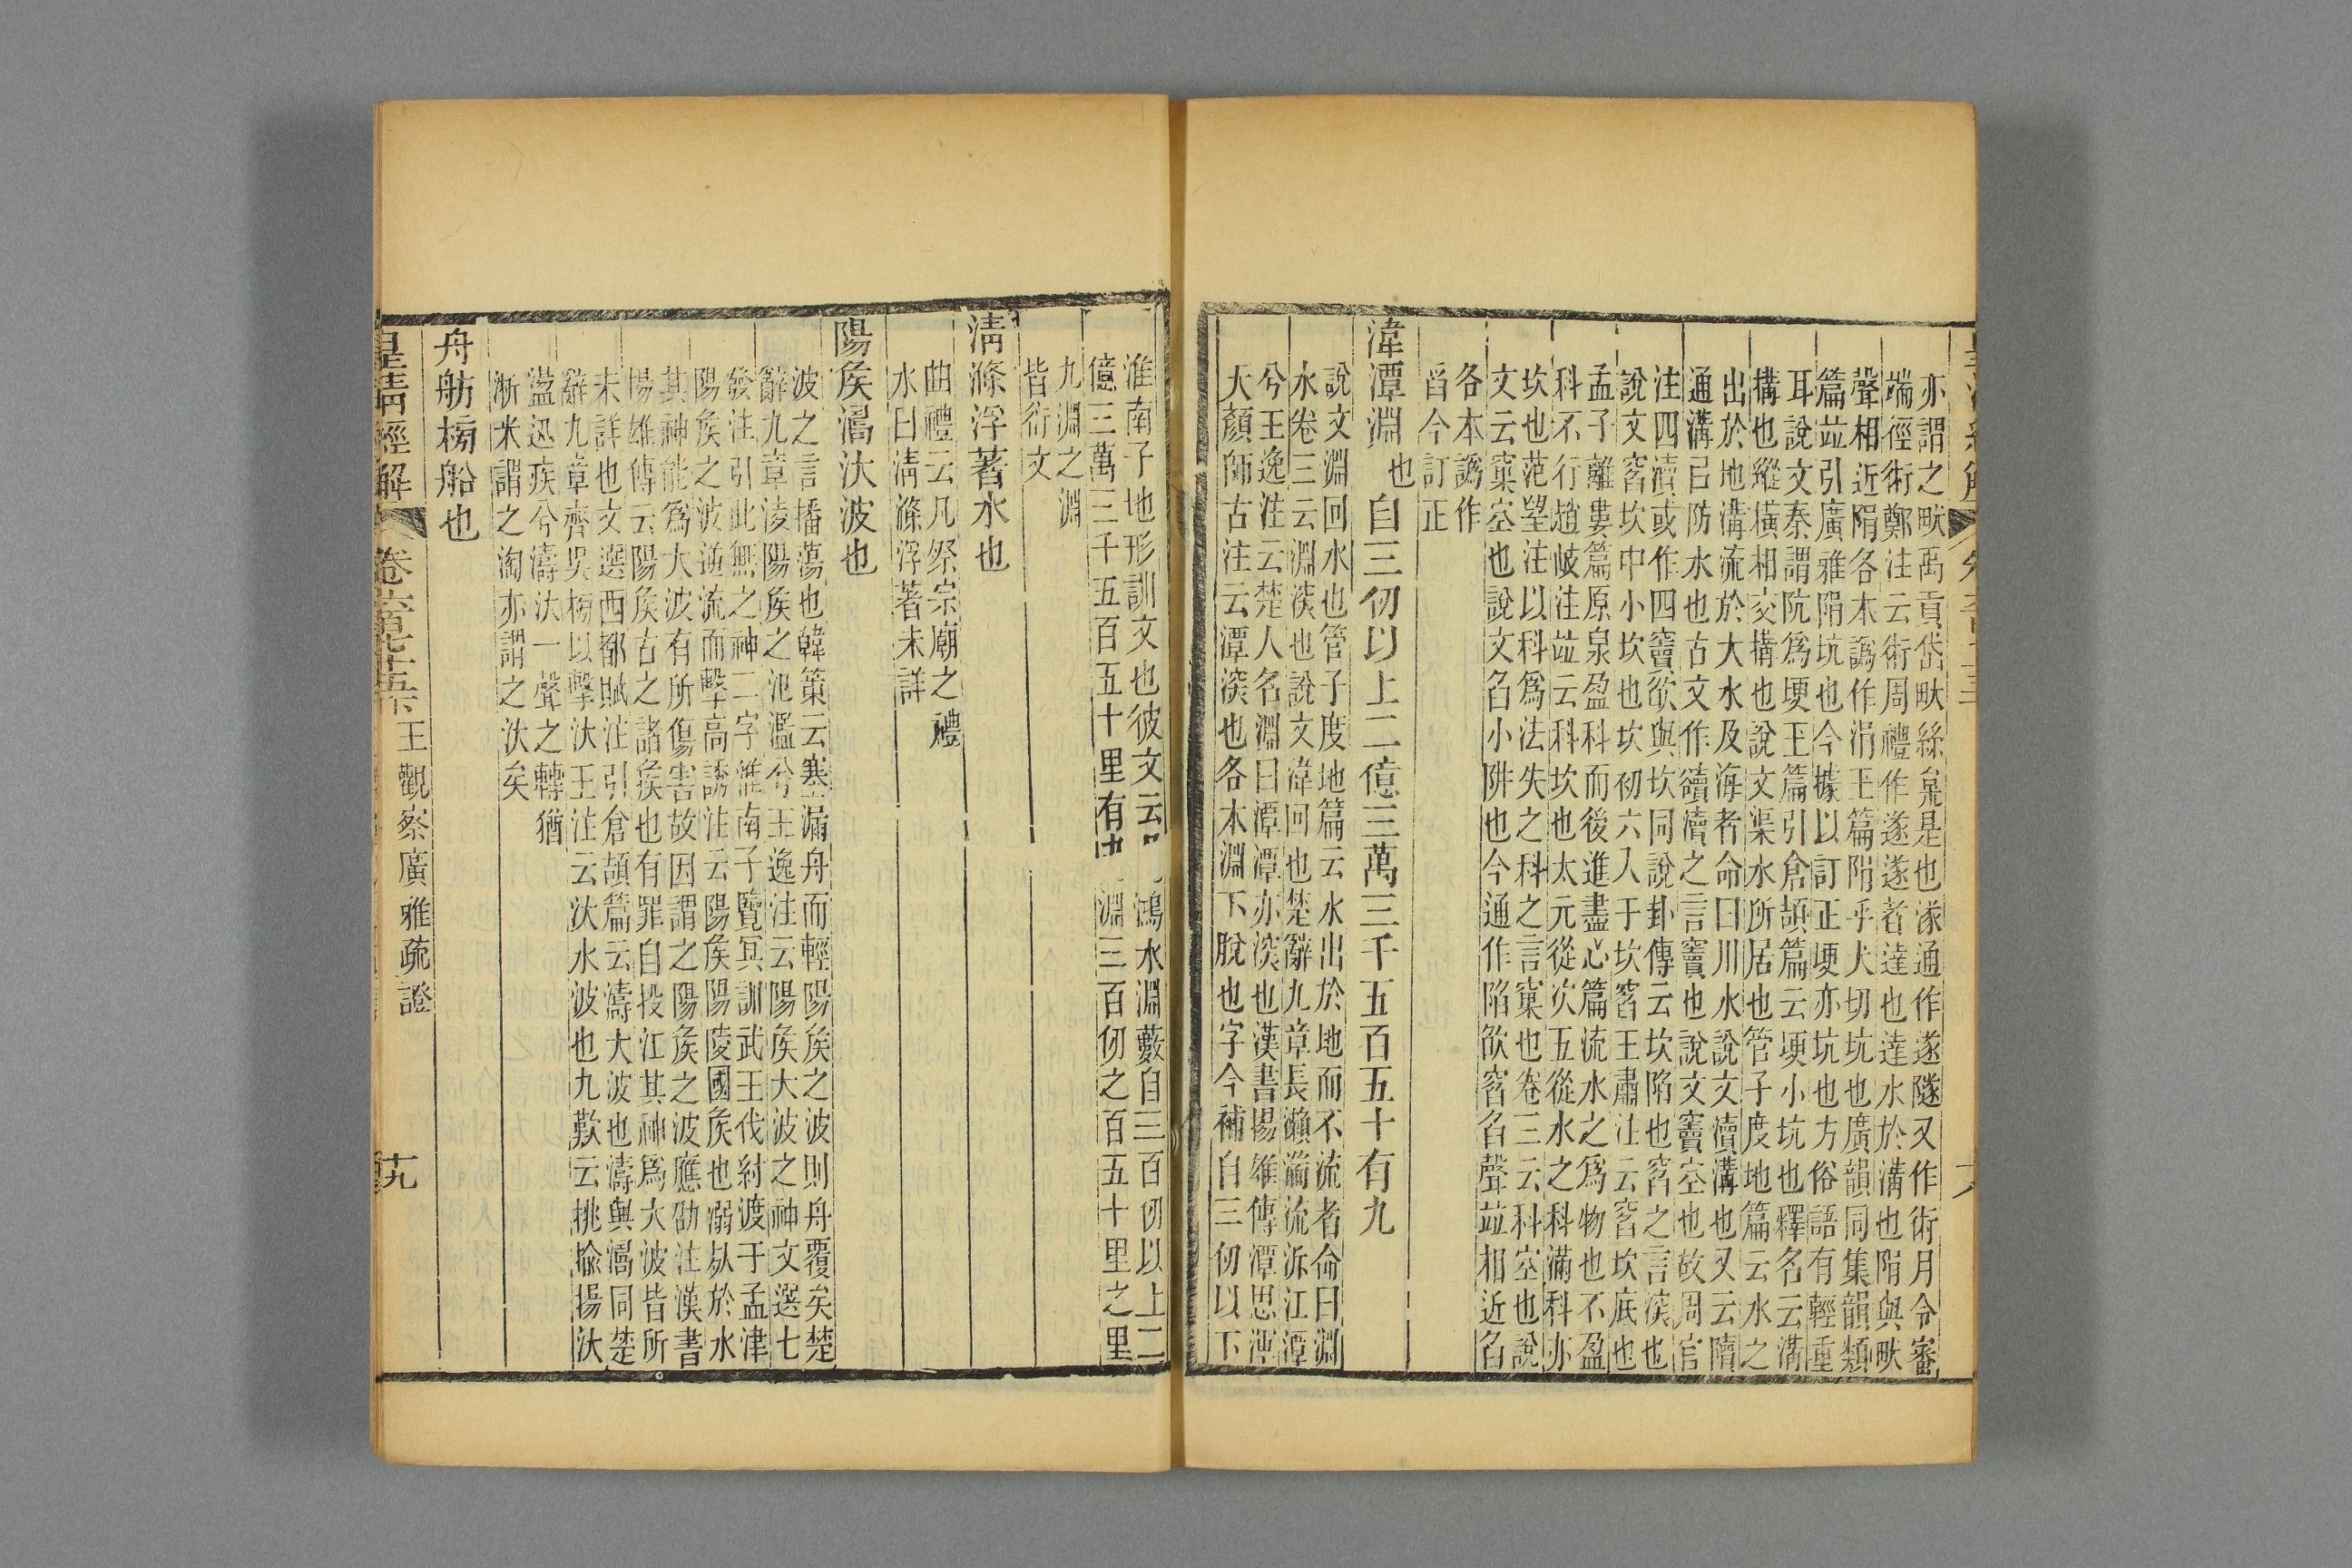 亦謂之畎禹貢岱畎絲枲是也㒸通作遂隧又作術月令審
端徑術鄭注云術周禮作遂遂者達也達水於溝也㡿與畎
聲相近㡿各本譌作涓玉篇㡿乎犬切坑也廣韻同集韻類
篇竝引廣雅㡿坑也今據以訂正埂亦坑也方俗語有輕重
耳說文秦謂阬爲埂玉篇引倉頡篇云埂小坑也釋名云溝
搆也縱橫相交搆也說文渠水所居也管子度地篇云水之
出於地溝流於大水及海者命曰川水說文瀆溝也又云隫
通溝㠯防水也古文作𧸇瀆之言竇也說文竇空也故周官
注四瀆或作四竇欿與坎同說卦傳云坎陷也窞之言深也
說文窞坎中小坎也坎初六入于坎窞王肅注云窞坎底也
孟子離婁篇原泉盈科而後進盡心篇流水之爲物也不盈
科不行趙岐注竝云科坎也太元從次五從水之科滿科亦
坎也范望注以科爲法失之科之言窠也卷三云科空也說
文云窠空也說文臽小阱也今通作陷欿窞臽聲竝相近臽
各本譌作
舀今訂正
湋潭淵也自三仞以上二億三萬三千五百五十有九
說文淵回水也管子度地篇云水出於地而不流者命曰淵
水卷三云淵深也說文湋回也楚辭九章長瀨湍流泝江潭
兮王逸注云楚人名淵曰潭潭亦深也漢書揚雄傳潭思渾
天顏師古注云潭深也各本淵下脫也字今補自三仞以下
淮南子地形訓文也彼文云 鴻水淵藪自三百仞以上二
億三萬三千五百五十里有 淵三百仞之百五十里之里
九淵之淵
皆衍文
淸滌浮蓍水也
曲禮云凡祭宗廟之禮
水曰淸滌浮蓍未詳
陽矦濄汏波也
波之言播蕩也韓策云塞漏舟而輕陽矦之波則舟覆矣楚
辭九章淩陽矦之氾濫兮王逸注云陽矦大波之神文選七
發注引此無之神二字淮南子覽冥訓武王伐紂渡于孟津
陽矦之波逆流而擊高誘注云陽矦陽陵國矦也溺死於水
其神能爲大波有所傷害故因謂之陽矦之波應劭注漢書
揚雄傳云陽矦古之諸矦也有罪自投江其神爲大波皆所
未詳也文選西都賦注引倉頡篇云濤大波也濤與濄同楚
辭九章齊吳榜以擊汏王注云汏水波也九歎云挑揄揚汏
盪迅疾兮濤汏一聲之轉猶
淅米謂之淘亦謂之汏矣
舟舫榜船也
皇淸經解
卷六百七十五下
王觀察廣雅疏證
十九